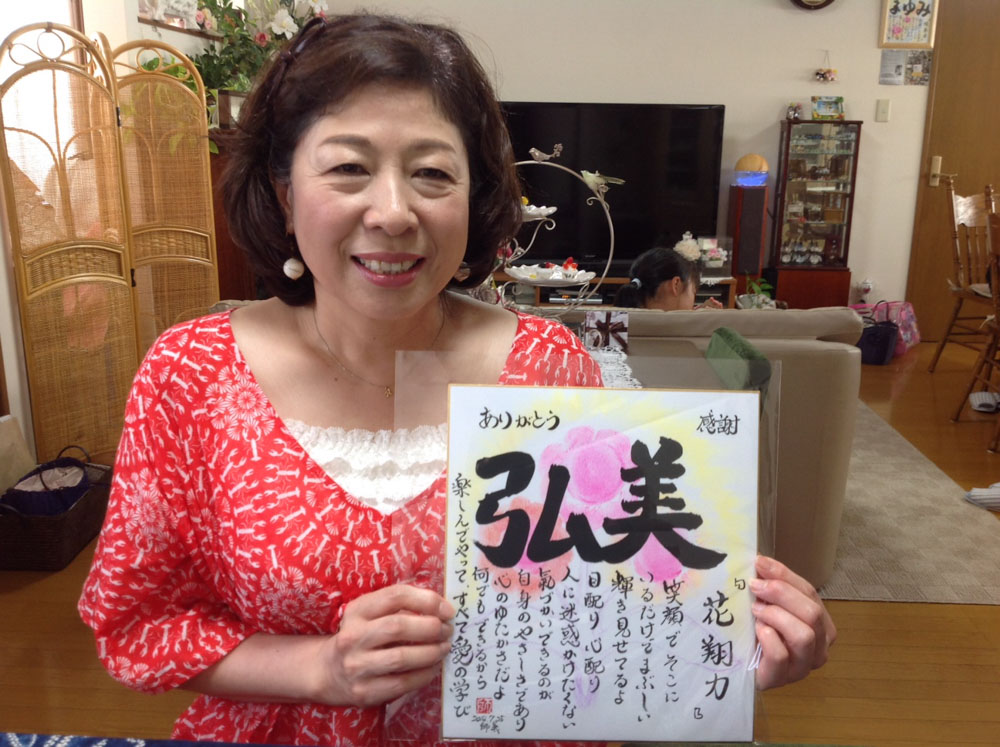 まゆみ
ありがとう
感謝
弘美
「花翔力」
笑顔で そこに
いるだけでまぶしい
輝き見せてるよ
目配り 心配り
人に迷惑かけたくない
氣づかいできるのが
自身のやさしさであり
心のゆたかさだよ
何でもできるから
楽しんでやって、すべて愛の学び